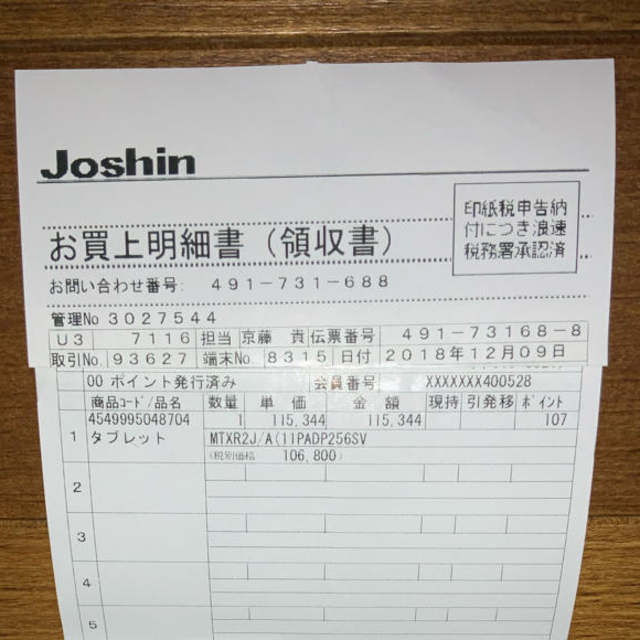 Joshin
印紙税申告納
付につき浪速
税務署承認済
お買上明細書（領収書）
お問い合わせ番号: 491-731-688
管理No 3027544
U3 7116 担当 京藤 貴 伝票番号 491-73168-8
取引No. 93627 端末No. 8315 日付 2018年12月09日
00 ポイント発行済み 会員番号 XXXXXXX400528
商品コード/品名 数量 単価 金額 現持 引発移 ポイント
1 4549995048704 1 115,344 115,344 107
タブレット MTXR2J/A(11PADP256SV
(税別価格 106,800)
2
3
4
5